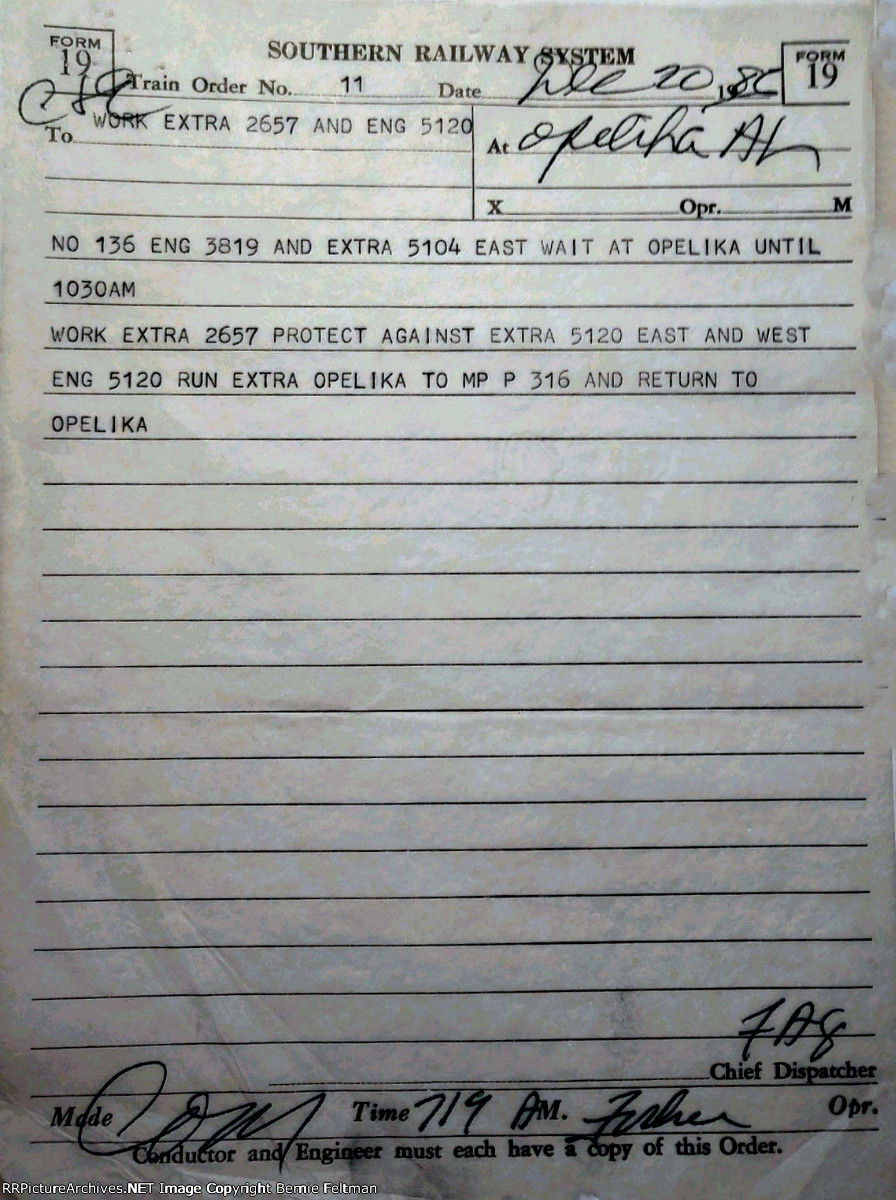 FORM 19
SOUTHERN RAILWAY SYSTEM
FORM 19
C&E
Train Order No. 11 Date Dec 20 1980
To WORK EXTRA 2657 AND ENG 5120
At Opelika AL
X Opr. M
NO 136 ENG 3819 AND EXTRA 5104 EAST WAIT AT OPELIKA UNTIL
1030AM
WORK EXTRA 2657 PROTECT AGAINST EXTRA 5120 EAST AND WEST
ENG 5120 RUN EXTRA OPELIKA TO MP P 316 AND RETURN TO
OPELIKA
FAG
Chief Dispatcher
Made Com Time 719 AM. Opr.
Conductor and Engineer must each have a copy of this Order.
RRPictureArchives.NET Image Copyright Bernie Feltman